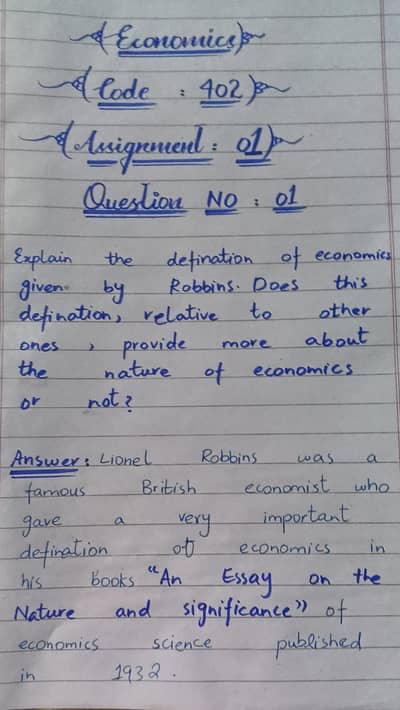 Economics
Code : 402
Assignment : 01
Question NO : 01
Explain the defination of economics
given by Robbins. Does this
defination, relative to other
ones , provide more about
the nature of economics
or not?
Answer: Lionel Robbins was a
famous British economist who
gave a very important
defination of economics in
his books "An Essay on the
Nature and significance" of
economics science published
in 1932.